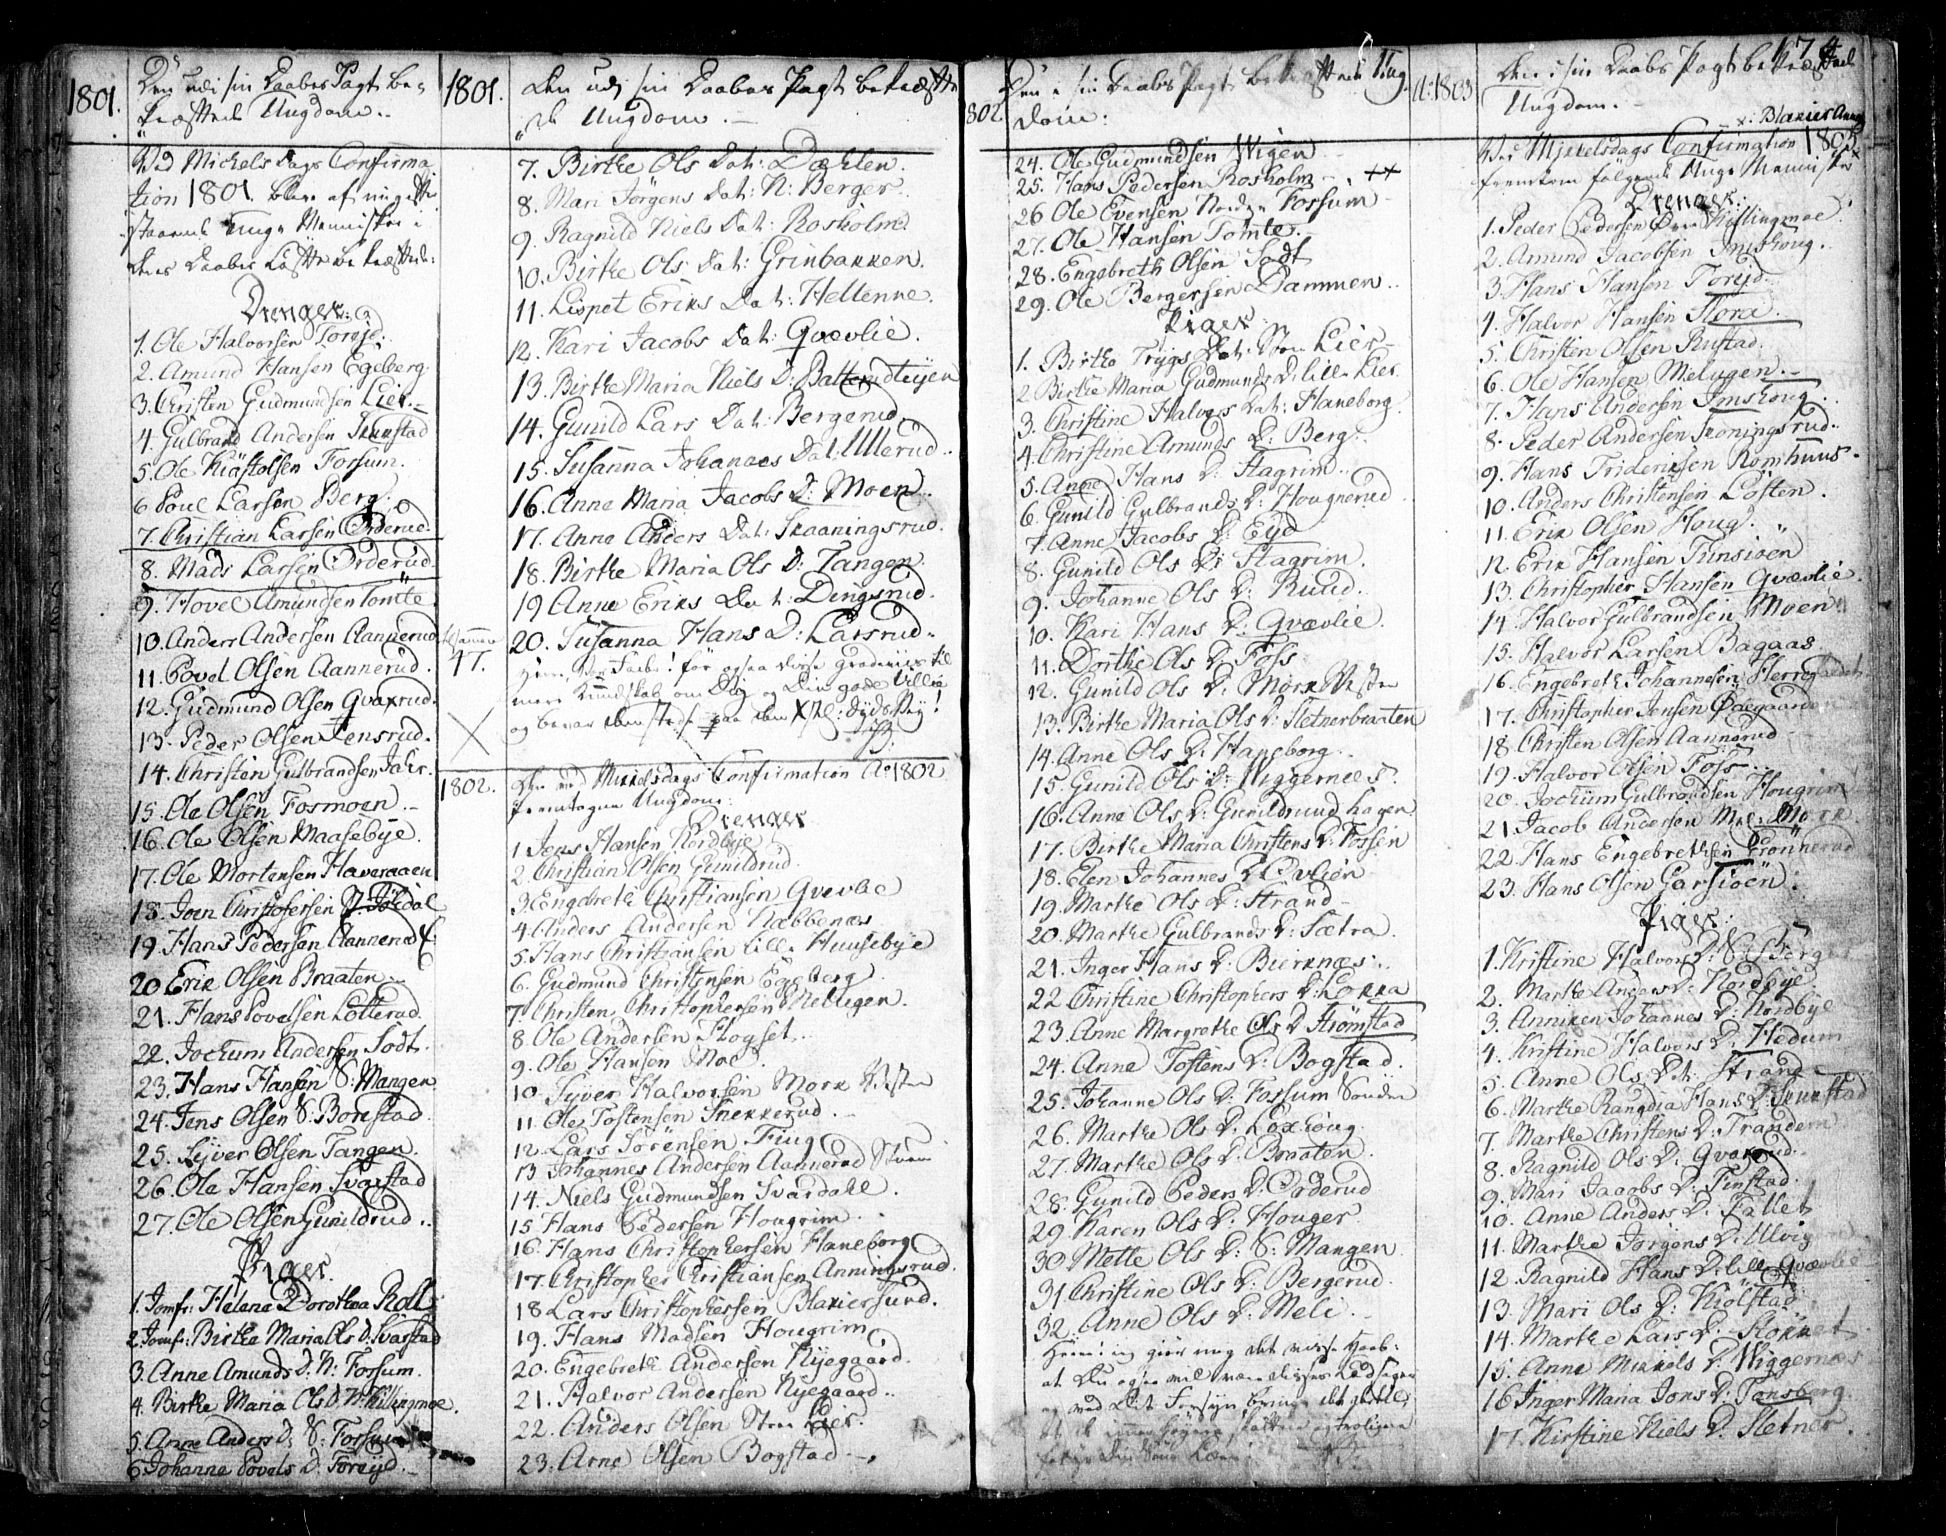 1801.
Den udi sin Daabes Pagt be-
kræftede Ungdom..
Ved Michels Dags Confirma
tion 1801. bleve af
staaende unge Mennisker i
deres Daabes Løfte bekræftede:
Drenge:
1. Ole Halvorsen Toreid.
2. Amund Hansen Egeberg.
3. Christen Gudmundsen Lier.
4. Gulbrand Andersen Skunstad
5. Ole Kiøstolsen Forsum.
6 Poul Larsen Berg.
7. Christian Larsen Orderud.
8. Mads Larsen Orderud.
9. Hovel Amundsen Tomte.
10. Anders Andersen Aannerud
11. Povel Olsen Aannerud.
12. Gudmund Olsen Qvaxrud.
13. Peder Olsen Jensrud.
14. Christen Gulbrandsen Jahr.
15. Ole Olsen Fosmoen.
16. Ole Olsen Maasebye.
17. Ole Mortensen Haveraaen
18. Joen Christofersen
19. Hans Pedersen Aannerud
20 Erik Olsen Braaten.
21. Hans Povelsen Lotterud.
22. Jochum Andersen Todt.
23. Hans Hansen S: Mangen
24. Jens Olsen S. Borestad
25. Syver Olsen Tangen.
26. Ole Hansen Svarstad
27. Ole Olsen Gunildrud..
Piger.
1. Jomfr: Helene Dorothea Roll
2. Jomfr: Birthe Maria Ols D. Svarstad
3. Anne Amunds D. N: Forsum.
4. Birthe Maria Ols D. N: Killingmoe.
5. Anne Anders D: S: Forsum
6. Johanne Povels D. Toreyd.
1801.
Den udj sin Daabes Pagt bekræfte-
de Ungdom.
7. Birthe Ols Dat: Dæhlen.
8. Mari Jörgens Dat: N: Berger.
9. Ragnild Niels Dat: Rosholm.
10. Birthe Ols Dat: Grinbakken.
11. Lispet Eriks Dat: Hellenne.
12. Kari Jacobs Dat: Qvævlie.
13. Birthe Maria Niels D:
14. Gunild Lars Dat: Bergerud.
15. Susanna Johannes Dat: Ullerud..
16. Anne Maria Jacobs D: Moen.
17. Anne Anders Dat: Skaaningsrud.
18. Birthe Maria Ols D: Tangen.
19 Anne Eriks Dat: Dingsrud.
20. Susanna Hans D: Larsrud.
47.
1802.
Den ved Mikkelsdags Confirmation Ao 1802
fremtagen Ungdom:
Drenge
1 Jens Hansen Nordbye
2. Christian Olsen Gunildrud.
3. Engebreth Christiansen Qvevlie
4. Anders Andersen Næbbenæs
5. Hans Christiansen Lille Huusebye
6. Gudmund Christensen Egeberg
7 Christen Christophersen Mellegen.
8. Ole Andersen Flogset..
9. Ole Hansen Moe.
10 Syver Halvorsen Mork Vesten
11. Ole Tostensen Snekkerud.
12 Lars Sørensen Tiug
13 Johannes Andersen Aannerud
14. Niels Gudmundsen Svardahl.
15 Hans Pedersen Hougrim.
16. Hans Christophersen Haneborg
17. Christopher Christiansen Anningsrud.
18 Lars Christophersen Blakiersund.
19. Hans Madsen Hougrim.
20. Engebreth Andersen Nyegaard.
21. Halvor Andersen Nyegaard..
22. Anders Olsen Store Lier.
23. Arne Olsen Bogstad
802.
Den i sin Daabs Pagt bekræftede Ung-
dom:
24. Ole Gudmundsen Wigen
25. Hans Pedersen Rosholm
26 Ole Evensen Nordre Fossum
27. Ole Hansen Tomte.
28. Engebreth Olsen Todt
29. Ole Bergersen Dammen..
Piger
1. Birthe Trygs Dat: Store Lier
2 Birthe Maria Gudmunds D: lille Lier
3. Christine Halvors Dat: Haneborg.
4. Christine Amunds D: Berg.
5. Anne Hans D: Hagrim..
6. Gunild Gulbrands D: Hougnerud
7. Anne Jacobs D: Eid
8. Gunild Ols D: Hagrim.
9. Johanne Ols D: Ruud.
10. Kari Hans D: Qvævlie.
11. Dorthe Ols D: Foss
12. Gunild Ols D: Mørk Vesten
13. Birthe Maria Ols D: Sletnerbraaten
14. Anne Ols D: Haneborg.
15. Gunild Ols D: Wiggernæs.
16. Anne Ols D: Gunildrud hagen
17. Birthe Maria Christens D: Fossen
18. Elen Johannes D: Evlien
19. Marthe Ols D: Strand
20. Marthe Gulbrands D: Sætra.
21. Inger Hans D: Bierknæs.
22 Christine Christophers D: Lokka
23. Anne Margrethe Ols D Strømstad
24. Anne Tostens D: Bogstad.
25. Johanne Ols D: Fossum Sondre
26. Marthe Ols D: Loxhoug.
27. Marthe Ols D: Braaten.
28. Gunild Peders D: Orderud
29 Karen Ols D: Houger.
30 Mette Ols D: S: Mangen
31 Christine Ols D: Bergerud.
32 Anne Ols D: Meli.
A: 1803
174
Den i sin Daabs Pagt bekræftede
Ungdom.
x: Blakier Annex
Ved Mikkelsdags Confirmation 1803
fremkom følgende Unge Mennisker
Drenge:
1. Peder Pedersen Øvre Killingmoe.
2. Amund Jacobsen Imshoug.
3 Hans Hansen Toreid.
4. Halvor Hansen Hora.
5. Christen Olsen Rustad.
6. Ole Hansen Melugen.
7. Hans Andersen Imshoug.
8. Peder Andersen Skoningsrud..
9. Hans Frideriksen Romhuus.
10. Anders Christensen Losten.
11. Erik Olsen Houg.
12. Erik Hansen Tunsioen
13. Christopher Hansen Qvævlie.
14. Halvor Gulbrandsen Moen
15. Halvor Larsen Bagaas
16. Engebreth Johannesen
17. Christopher Jensen Ødegaarden
18. Christen Olsen Aannerud
19. Halvor Olsen Foss
20. Jochum Gulbrandsen Hougrim
21 Jacob Andersen Mel: Mork
22. Hans Engebrethsen Prönnerud
23. Hans Olsen Garsioen:
Piger:
1. Kristine Halvors D: S: Berger
2. Marthe Anders D: Nordbye.
3. Anniken Johannes D: Nordbye
4. Kristine Halvors D. Hedum
5. Anne Ols Dat: Strand
6. Marthe Rangdia Hans D: Skunstad
7. Marthe Christens D: Trandem
8. Ragnild Ols D: Qvaxrud.
9. Mari Jacobs D: Finstad.
10. Anne Anders D: Fallet
11. Marthe Jorgens D: Ulvig
12. Ragnild Hans D: lille Qvævlie
13. Mari Ols D: Kiölstad
14. Marthe Lars D:
15. Anne Mikkels D: Wiggernæs
16 Inger Maria Jons D: Tonsberg.
17. Kirstine Niels D: Sletner.